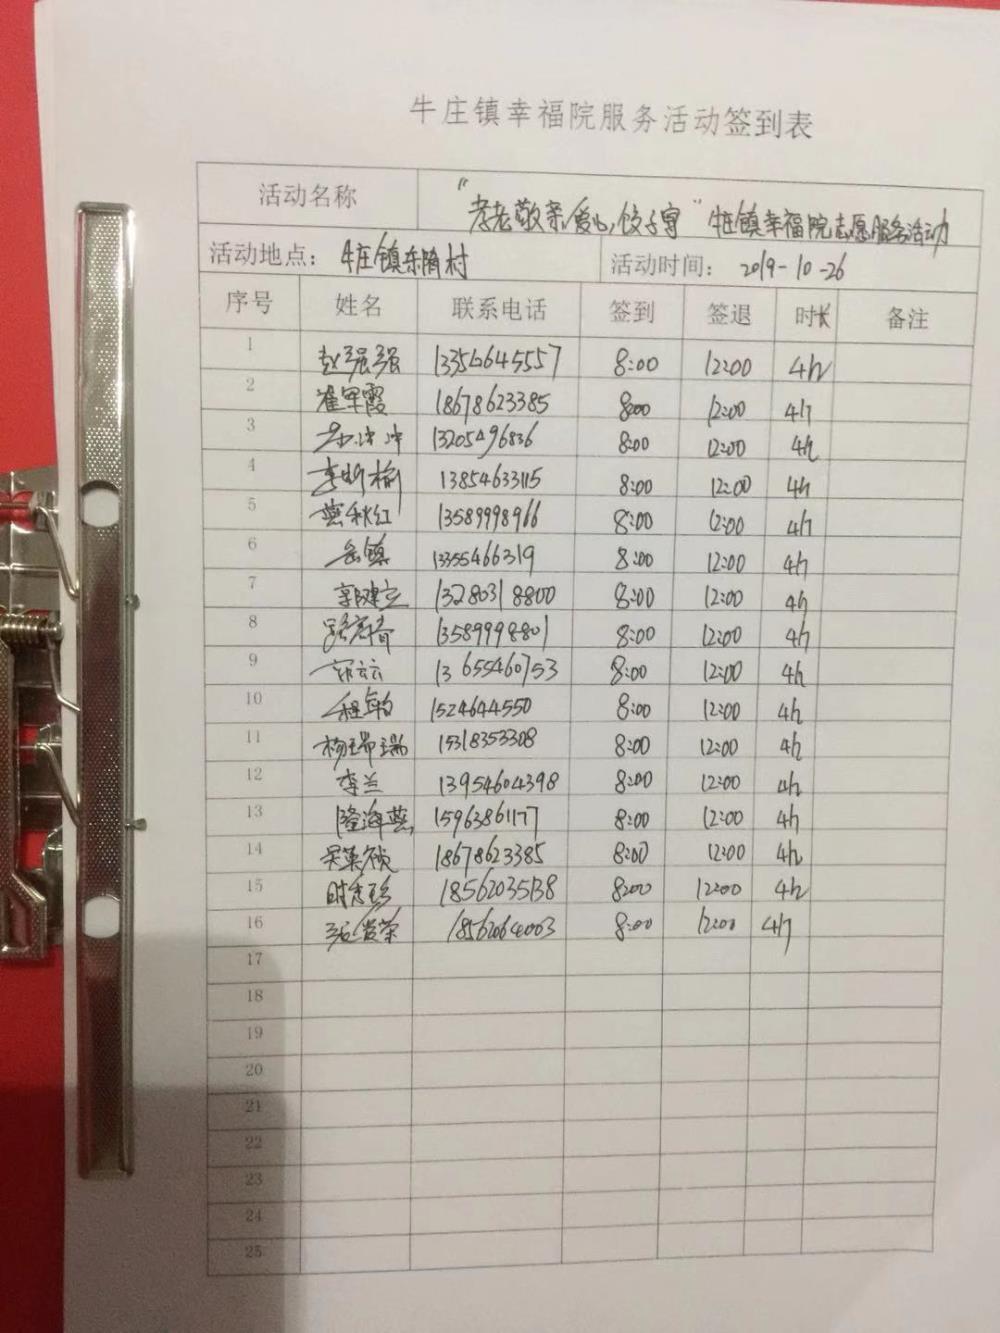 牛庄镇幸福院服务活动签到表
活动名称 "孝老敬亲,爱心饺子宴"牛庄镇幸福院志愿服务活动
活动地点：牛庄镇东隋村 活动时间：2019-10-26
序号 姓名 联系电话 签到 签退 时长 备注
1 赵强强 13356645557 8:00 12:00 4h
2 崔军霞 18678623385 8:00 12:00 4h
3 冲冲 13205496836 8:00 12:00 4h
4 李 13854633115 8:00 12:00 4h
5 燕秋红 13589998966 8:00 12:00 4h
6 岳镇 13355466319 8:00 12:00 4h
7 郭建立 13280318800 8:00 12:00 4h
8 13589998801 8:00 12:00 4h
9 云云 13655460753 8:00 12:00 4h
10 程 1524644550 8:00 12:00 4h
11 杨瑞瑞 15318353308 8:00 12:00 4h
12 李兰 13954604398 8:00 12:00 4h
13 隆海燕 15963861177 8:00 12:00 4h
14 吴英祯 18678623385 8:00 12:00 4h
15 时秀珍 18562035138 8:00 12:00 4h
16 张俊荣 18562064003 8:00 12:00 4h
17
18
19
20
21
22
23
24
25